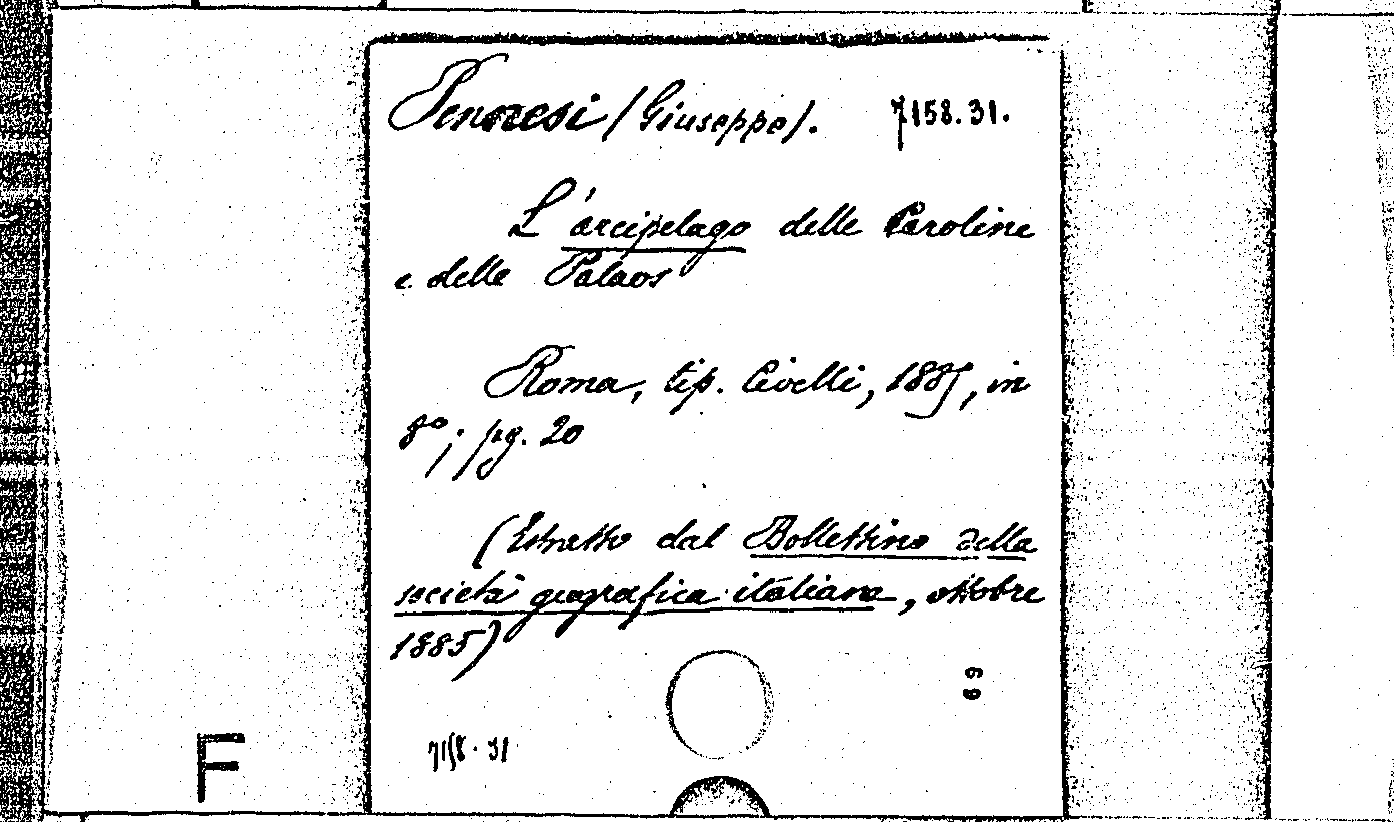 Pennesi (Giuseppe). 7158.31.
L'arcipelago delle Caroline
e delle Palaos
Roma, tip. Civelli, 1885, in
8°; pg. 20
(Estratto dal Bollettino della
società geografica italiana, ottobre
1885)
69
7158.31
F